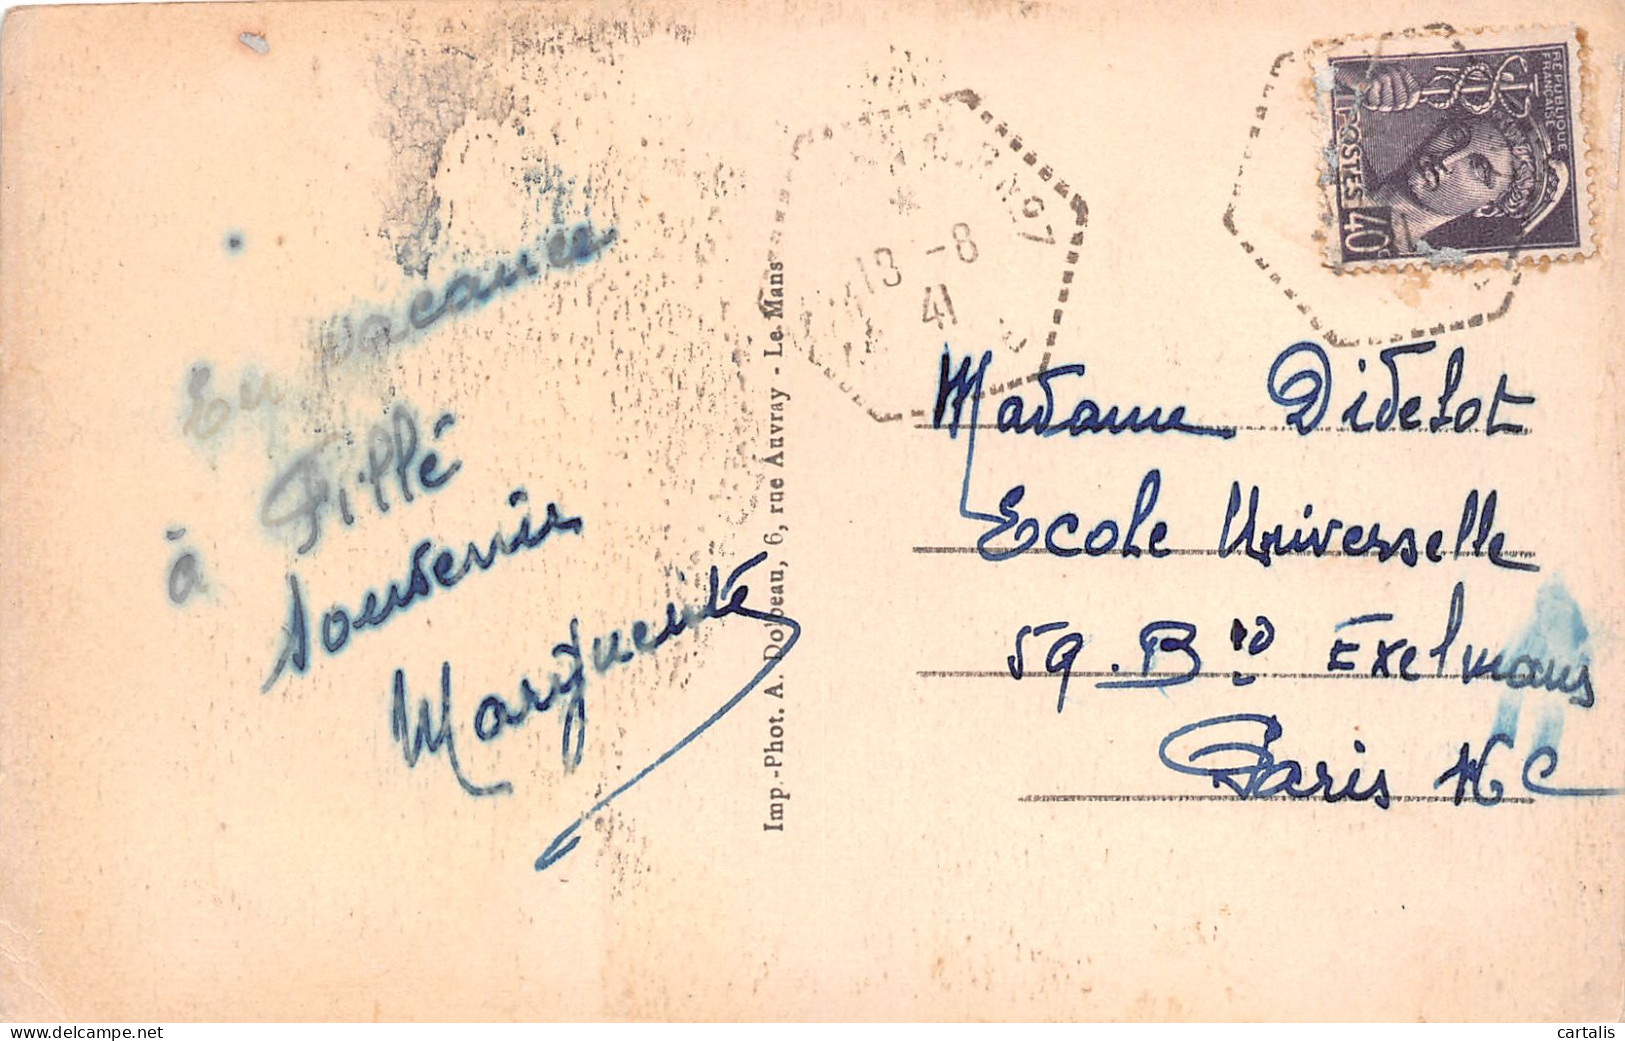 En vacance
à Fillé
Souvenir
Marguerite
Imp.-Phot. A. Dolbeau, 6, rue Auvray - Le Mans
13 -8
41
RÉPUBLIQUE
FRANÇAISE
POSTES 40c
Madame Didelot
Ecole Universelle
59. Bd Exelmans
Paris
cartalis